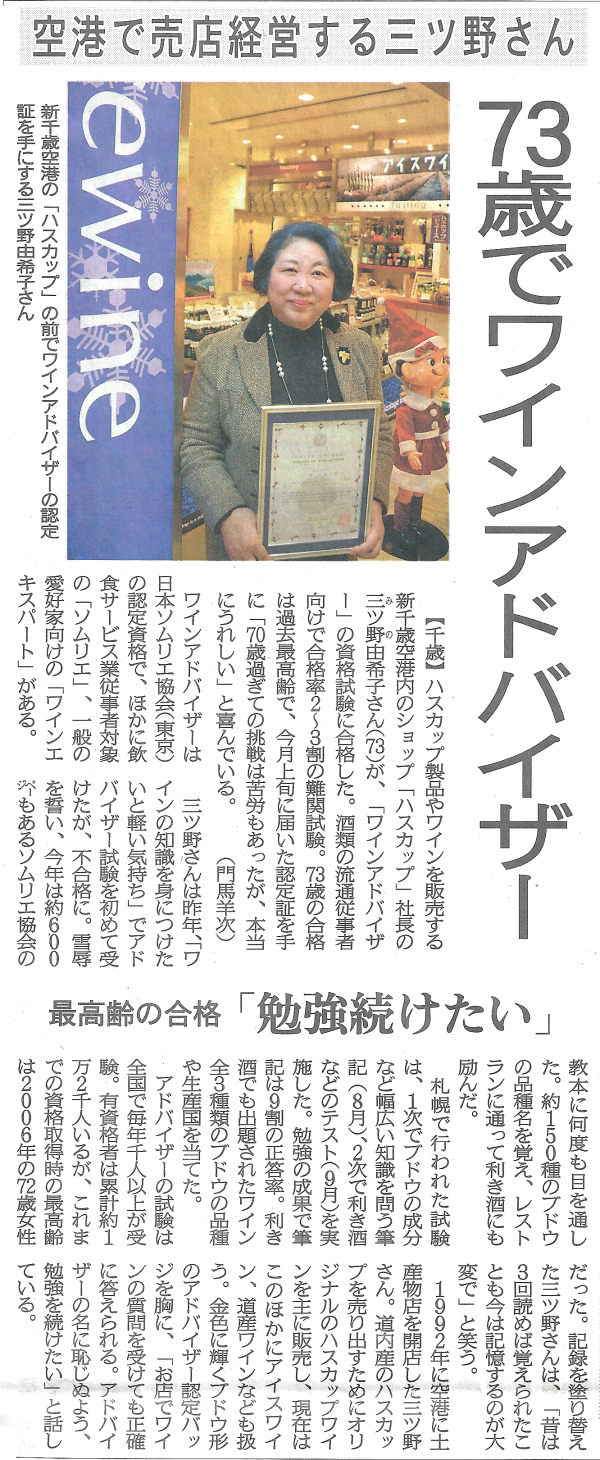 空港で売店経営する三ツ野さん
73歳でワインアドバイザー
ewine
アイスワイ
Tasting
新千歳空港の「ハスカップ」の前でワインアドバイザーの認定
証を手にする三ツ野由希子さん
【千歳】ハスカップ製品やワインを販売する
新千歳空港内のショップ「ハスカップ」社長の
三ツ野由希子さん(73)が、「ワインアドバイザ
ー」の資格試験に合格した。酒類の流通従事者
向けで合格率2~3割の難関試験。73歳の合格
は過去最高齢で、今月上旬に届いた認定証を手
に「70歳過ぎての挑戦は苦労もあったが、本当
にうれしい」と喜んでいる。　(門馬羊次)
ワインアドバイザーは
日本ソムリエ協会(東京)
の認定資格で、ほかに飲
食サービス業従事者対象
の「ソムリエ」、一般の
愛好家向けの「ワインエ
キスパート」がある。
三ツ野さんは昨年、「ワ
インの知識を身につけた
いと軽い気持ち」でアド
バイザー試験を初めて受
けたが、不合格に。雪辱
を誓い、今年は約600
ページもあるソムリエ協会の
最高齢の合格「勉強続けたい」
教本に何度も目を通し
た。約150種のブドウ
の品種名を覚え、レスト
ランに通って利き酒にも
励んだ。
札幌で行われた試験
は、1次でブドウの成分
など幅広い知識を問う筆
記(8月)、2次で利き酒
などのテスト(9月)を実
施した。勉強の成果で筆
記は9割の正答率。利き
酒でも出題されたワイン
全3種類のブドウの品種
や生産国を当てた。
アドバイザーの試験は
全国で毎年千人以上が受
験。有資格者は累計約1
万2千人いるが、これま
での資格取得時の最高齢
は2006年の72歳女性
だった。記録を塗り替え
た三ツ野さんは、「昔は
3回読めば覚えられたこ
とも今は記憶するのが大
変で」と笑う。
1992年に空港に土
産物店を開店した三ツ野
さん。道内産のハスカッ
プを売り出すためにオリ
ジナルのハスカップワイ
ンを主に販売し、現在は
このほかにアイスワイ
ン、道産ワインなども扱
う。金色に輝くブドウ形
のアドバイザー認定バッ
ジを胸に、「お店でワイ
ンの質問を受けても正確
に答えられる。アドバイ
ザーの名に恥じぬよう、
勉強を続けたい」と話し
ている。